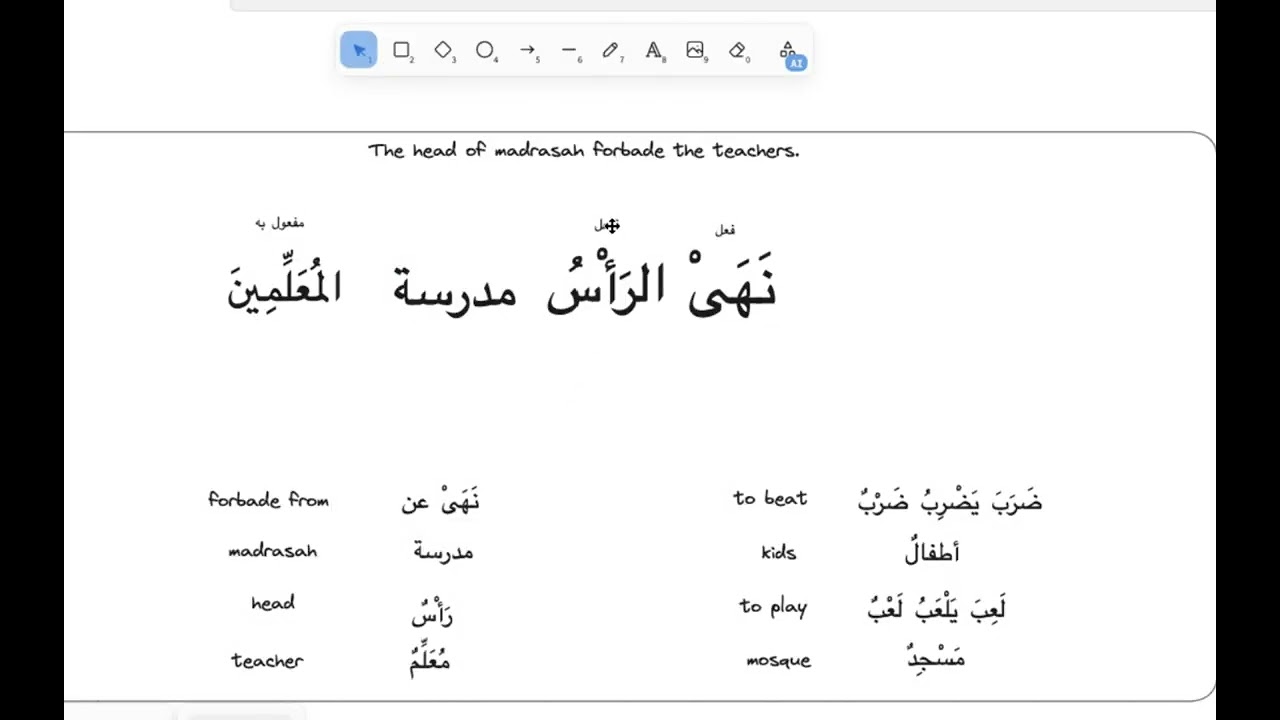 1 2 3 4 5 6 7 8 9 0 AI
The head of madrasah forbade the teachers.
فعل مفعول به
نَهَىْ الرَأْسُ مدرسة المُعَلِّمِينَ
forbade from نَهَىْ عن
madrasah مدرسة
head رَأْسٌ
teacher مُعَلِّمٌ
to beat ضَرَبَ يَضْرِبُ ضَرْبٌ
kids أطفالٌ
to play لَعِبَ يَلْعَبُ لَعْبٌ
mosque مَسْجِدٌ